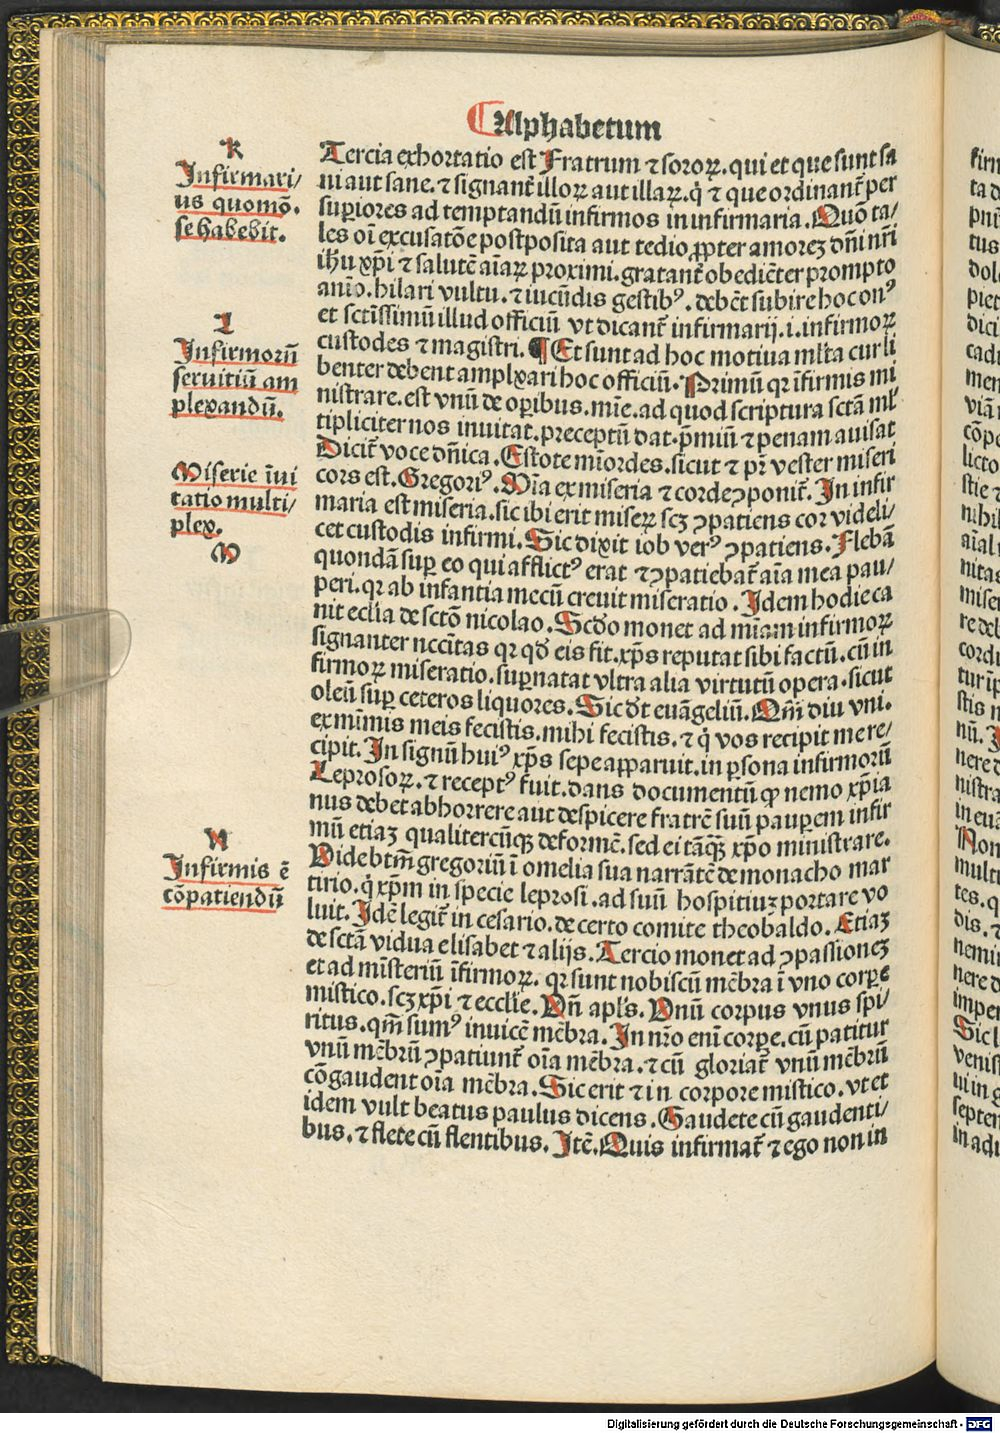 Alphabetum
K
Infirmari/
us quomō.
se habebit.
L
Infirmorū
seruitiū am
plexandū.
Miserie īui
tatio multi/
plex.
M
N
Infirmis ē
cōpatiendū
Tercia exhortatio est Fratrum ⁊ sororꝝ. qui et que sunt sa
ni aut sane. ⁊ signant᷑ illorꝝ aut illarꝝ. q̇ ⁊ que ordinant᷑ per
suꝑiores ad temptandū infirmos in infirmaria. Quō ta/
les oī excusatōe postposita aut tedio ꝓpter amorez dn̄i nr̄i
ih̄u xp̄i ⁊ salutē aīarꝝ proximi. gratant᷑ obediēter prompto
anīo. hilari vultu. ⁊ iucūdis gestibꝰ. debēt subire hoc onꝰ
et sctīssimū illud officiū vt dicant᷑ infirmarij. i. infirmorꝝ
custodes ⁊ magistri. ¶ Et sunt ad hoc motiua ml̄ta cur li
benter debent amplexari hoc officiū. Primū qꝛ īfirmis mi
nistrare. est vnū de oꝑibus. mīe. ad quod scriptura sctā ml̄
tipliciter nos inuitat. preceptū dat. p̄miū ⁊ penam auisat
Dicit᷑ voce dn̄ica. Estote mīordes. sicut ⁊ pr̄ vester miseri
cors est. Gregoriꝰ. Mīa ex miseria ⁊ corde ꝯponit᷑. In infir
maria est miseria. sic ibi erit miserꝝ scꝫ ꝯpatiens cor videli/
cet custodis infirmi. Sic dixit iob verꝰ ꝯpatiens. Flebā
quondā suꝑ eo qui afflictꝰ erat ⁊ ꝯpatiebat᷑ aīa mea pau/
peri. qꝛ ab infantia mecū creuit miseratio. Idem hodie ca
nit ecclīa de sctō nicolao. Scd̄o monet ad mīam infirmorꝝ
signanter nccītas qꝛ qd̄ eis fit. xp̄s reputat sibi factū. cū in
firmorꝝ miseratio. suꝑnatat vltra alia virtutū opera. sicut
oleū suꝑ ceteros liquores. Sic dt̄ euāgeliū. Qm̄ diu vni.
ex mīmis meis fecistis. mihi fecistis. ⁊ q̇ vos recipit me re/
cipit. In signū huiꝰ xp̄s sepe apparuit. in ꝑsona infirmorū
Leprosorꝝ. ⁊ receptꝰ fuit. dans documentū ꝙ nemo xp̄ia
nus debet abhorrere aut despicere fratrē suū pauꝑem infir
mū etiaꝫ qualitercūqꝫ deformē. sed ei tāqꝫ xp̄o ministrare.
Vide btm̄ gregoriū ī omelia sua narrātē de monacho mar
tirio. q̇ xp̄m in specie leprosi. ad suū hospitiuꝫ portare vo
luit. Idē legit᷑ in cesario. de certo comite theobaldo. Etiaꝫ
de sctā vidua elisabet ⁊ alijs. Tercio monet ad ꝯpassioneꝫ
et ad mīsteriū īfirmorꝝ. qꝛ sunt nobiscū mēbra ī vno corꝑe
mistico. scꝫ xp̄i ⁊ ecclīe. Vn̄ apl̄s. Vnū corpus vnus spi/
ritus. qm̄ sumꝰ inuicē mēbra. In nr̄o enī corꝑe. cū patitur
vnū mēbrū ꝯpatiunt᷑ oīa mēbra. ⁊ cū gloriat᷑ vnū mēbrū
cōgaudent oīa mēbra. Sic erit ⁊ in corpore mistico. vt et
idem vult beatus paulus dicens. Gaudete cū gaudenti/
bus. ⁊ flete cū flentibus. Itē. Quis infirmat᷑ ⁊ ego non in
Digitalisierung gefördert durch die Deutsche Forschungsgemeinschaft - DFG